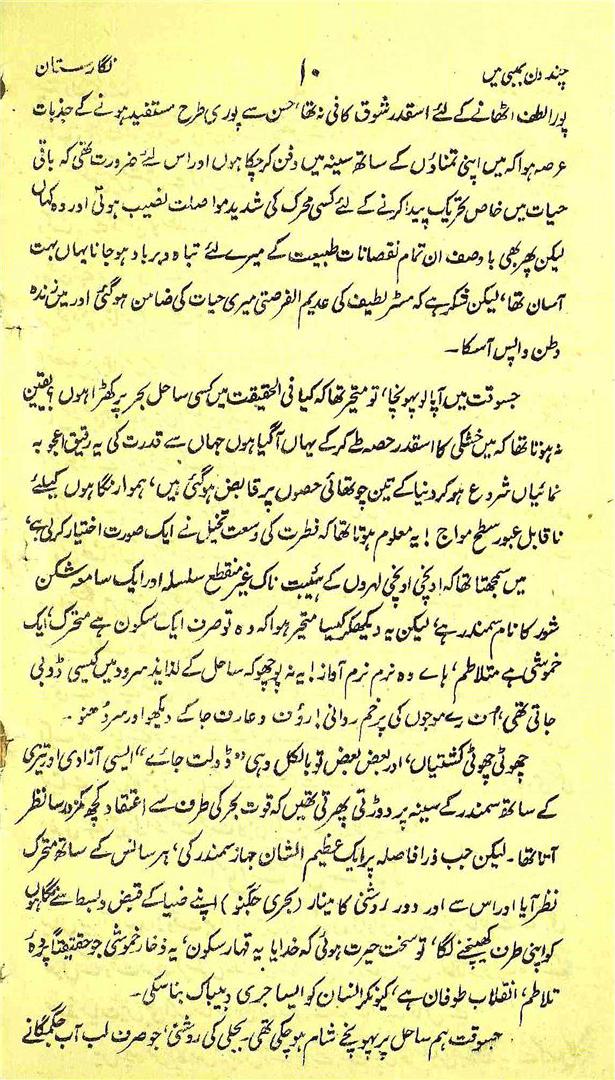 چند دن بمبئی میں ۱۰ نگارستان
پورا لطف اٹھانے کے لئے اسقدر شوق کافی نہ تھا، حسن سے پوری طرح مستفید ہونے کے جذبات
عرصہ ہوا کہ میں اپنی تمناؤں کے ساتھ سینہ میں دفن کر چکا ہوں اور اس لئے ضرورت تھی کہ باقی
حیات میں خاص تحریک پیدا کرنے کے لئے کسی محرک کی شدید مواصلت نصیب ہوتی اور وہ کہاں
لیکن پھر بھی با وصف ان تمام نقصانات طبیعت کے میرے لئے تباہ و برباد ہو جانا یہاں بہت
آسان تھا، لیکن شکر ہے کہ مسٹر لطیف کی عدیم الفرصتی میری حیات کی ضامن ہو گئی اور میں زندہ
وطن واپس آسکا۔
جسوقت میں آپالو پہونچا، تو متحیر تھا کہ کیا فی الحقیقت میں کسی ساحل بحر پر کھڑا ہوں؟ یقین
نہ ہوتا تھا کہ میں خشکی کا اسقدر حصہ طے کر کے یہاں آگیا ہوں جہاں سے قدرت کی یہ رقیق اعجوبہ
نمائیاں شروع ہو کر دنیا کے تین چوتھائی حصوں پر قابض ہو گئی ہیں، ہموار نگاہوں کیلئے
ناقابل عبور سطح مواج! یہ معلوم ہوتا تھا کہ فطرت کی وسعت تخیل نے ایک صورت اختیار کر لی ہے،
میں سمجھتا تھا کہ اونچی اونچی لہروں کے ہیئیت ناک غیر منقطع سلسلہ اور ایک سامعہ شکن
شور کا نام سمندر ہے، لیکن یہ دیکھکر کیسا متحیر ہوا کہ وہ تو صرف ایک سکون ہے متحرک، ایک
خموشی ہے متلاطم، ہاے وہ نرم نرم آواز! یہ نہ پوچھو کہ ساحل کے لذایذ سرود میں کیسی ڈوبی
جاتی تھی، اُف رے موجوں کی پرخم روانی! رؤف و عارف جا کے دیکھو اور سر دُھنو۔
چھوٹی چھوٹی کشتیاں، اور بعض بعض تو بالکل وہی "ڈولت جاے" ایسی آزادی اور تیزی
کے ساتھ سمندر کے سینہ پر دوڑتی پھرتی تھیں کہ قوت بحر کی طرف سے اعتقاد کچھ کمزور سا نظر
آتا تھا۔ لیکن جب ذرا فاصلہ پر ایک عظیم الشان جہاز سمندر کی، ہر سانس کے ساتھ متحرک
نظر آیا اور اس سے اور دور روشنی کا مینار (بحری جگنو) اپنے ضیا کے قبض و بسط سے نگاہوں
کو اپنی طرف کھینچنے لگا، تو سخت حیرت ہوئی کہ خدایا یہ قہار سکون، یہ ذخار خموشی جو حقیقتاً پردۂ
تلاطم، انقلاب طوفان ہے، کیونکر انسان کو ایسا جری و بیباک بنا سکی۔
جسوقت ہم ساحل پر پہونچے شام ہو چکی تھی، بجلی کی روشنی، جو صرف لب آب جگمگانے